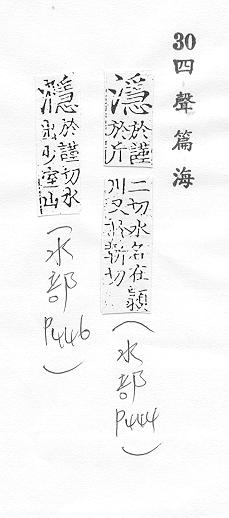 30 四聲篇海
濦 於謹
於斤
二切水名在潁
川又於靳切
(水部 P444)
㶏 於謹切水
出少室山
(水部 P446)